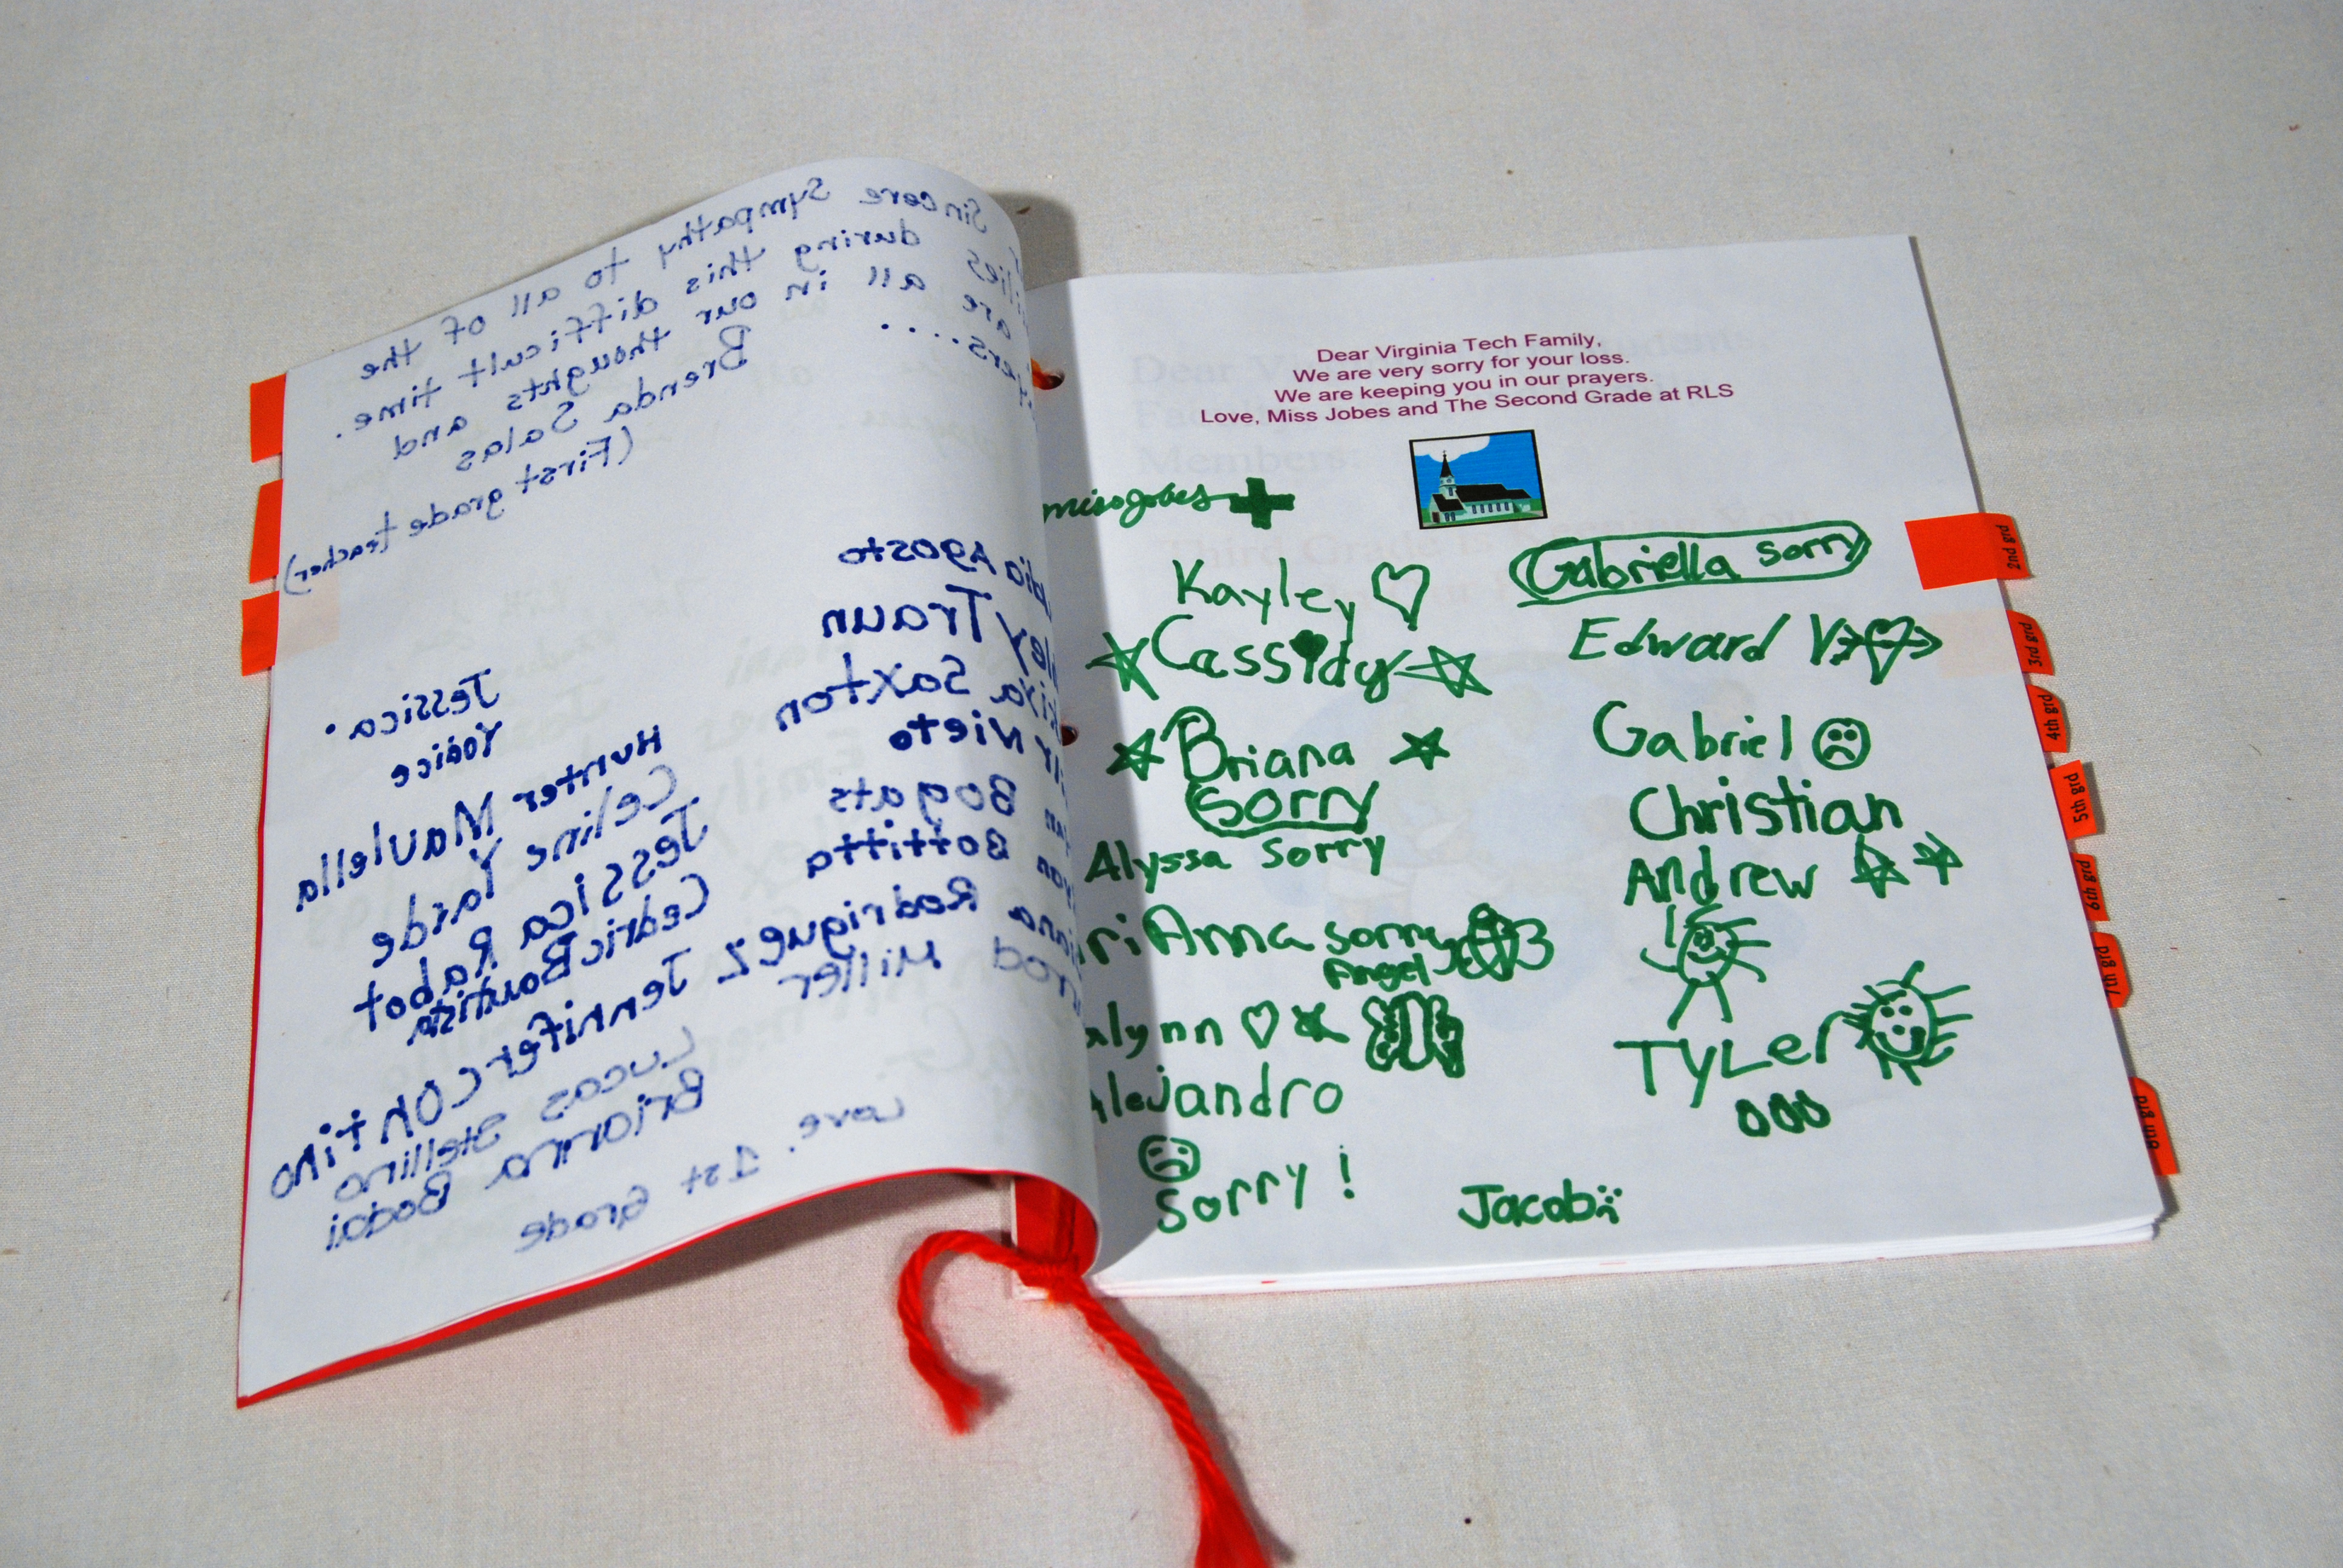 Sincere sympathy to all of the
lies during this difficult time.
are all in our thoughts and
ers....
Brenda Salas
(First grade teacher)
Agosto
ey Traun
Saxton
Nieto
Bogats
Bottitta
Rodriguez
Miller
Jessica.
Hunter Maulella
Celine Yarde
Jessica Rabot
Cedric Bautista
Jennifer Contino
Lucas Stellino
Brianna Bodai
Love, 1st Grade
Dear Virginia Tech Family,
We are very sorry for your loss.
We are keeping you in our prayers.
Love, Miss Jobes and The Second Grade at RLS
Kayley
Cassidy
Briana
sorry
Alyssa sorry
riAnna sorry
Angel
alynn
Alejandro
Sorry!
Gabriella sorry
Edward V
Gabriel
Christian
Andrew
TYLer
Jacob
2nd grd
3rd grd
4th grd
5th grd
6th grd
7th grd
8th grd